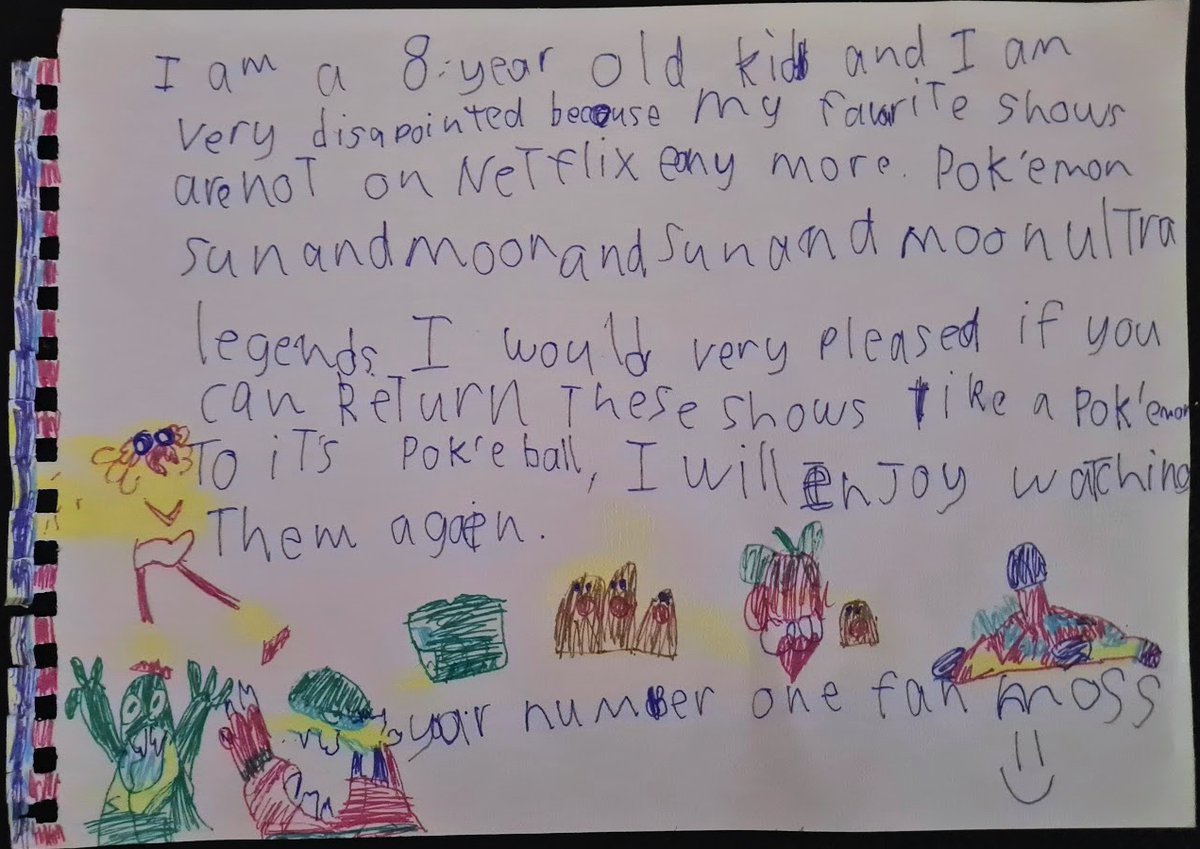 I am a 8-year old kid and I am
very disapointed because my favorite shows
are not on Netflix eany more. Pok'emon
sun and moon and sun and moon ultra
legends. I would very pleased if you
can Return these shows like a Pok'emon
To it's Pok'e ball, I will Enjoy watching
Them again.
your number one fan moss